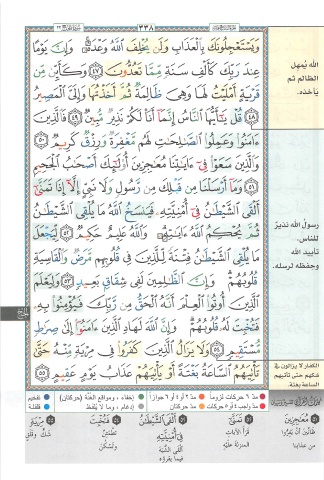 ٣٣٨
وَيَسْتَعْجِلُونَكَ بِالْعَذَابِ وَلَن يُخْلِفَ اللَّهُ وَعْدَهُ وَإِنَّ يَوْمًا
عِندَ رَبِّكَ كَأَلْفِ سَنَةٍ مِّمَّا تَعُدُّونَ ٤٧ وَكَأَيِّن مِّن
قَرْيَةٍ أَمْلَيْتُ لَهَا وَهِيَ ظَالِمَةٌ ثُمَّ أَخَذْتُهَا وَإِلَيَّ الْمَصِيرُ
٤٨ قُلْ يَا أَيُّهَا النَّاسُ إِنَّمَا أَنَا لَكُمْ نَذِيرٌ مُّبِينٌ ٤٩ فَالَّذِينَ
ءَامَنُوا وَعَمِلُوا الصَّالِحَاتِ لَهُم مَّغْفِرَةٌ وَرِزْقٌ كَرِيمٌ ٥٠
وَالَّذِينَ سَعَوْا فِي ءَايَاتِنَا مُعَاجِزِينَ أُولَٰئِكَ أَصْحَابُ الْجَحِيمِ
٥١ وَمَا أَرْسَلْنَا مِن قَبْلِكَ مِن رَّسُولٍ وَلَا نَبِيٍّ إِلَّا إِذَا تَمَنَّىٰ
أَلْقَى الشَّيْطَانُ فِي أُمْنِيَّتِهِ فَيَنسَخُ اللَّهُ مَا يُلْقِي الشَّيْطَانُ
ثُمَّ يُحْكِمُ اللَّهُ ءَايَاتِهِ وَاللَّهُ عَلِيمٌ حَكِيمٌ ٥٢ لِّيَجْعَلَ
مَا يُلْقِي الشَّيْطَانُ فِتْنَةً لِّلَّذِينَ فِي قُلُوبِهِم مَّرَضٌ وَالْقَاسِيَةِ
قُلُوبُهُمْ وَإِنَّ الظَّالِمِينَ لَفِي شِقَاقٍ بَعِيدٍ ٥٣ وَلِيَعْلَمَ
الَّذِينَ أُوتُوا الْعِلْمَ أَنَّهُ الْحَقُّ مِن رَّبِّكَ فَيُؤْمِنُوا بِهِ
فَتُخْبِتَ لَهُ قُلُوبُهُمْ وَإِنَّ اللَّهَ لَهَادِ الَّذِينَ ءَامَنُوا إِلَىٰ صِرَاطٍ
مُّسْتَقِيمٍ ٥٤ وَلَا يَزَالُ الَّذِينَ كَفَرُوا فِي مِرْيَةٍ مِّنْهُ حَتَّىٰ
تَأْتِيَهُمُ السَّاعَةُ بَغْتَةً أَوْ يَأْتِيَهُمْ عَذَابُ يَوْمٍ عَقِيمٍ ٥٥
الله يُمهل
الظالم ثم
يأخذه.
رسول الله نذير
للناس.
تأييد الله
وحفظه لرسله.
الكفار لا يزالون في
شكهم حتى تأتيهم
الساعة بغتة.
مد ٦ حركات لزوماً
مد ٢ أو ٤ أو ٦ جوازاً
إخفاء، ومواقع الغنة (حركتان)
تفخيم
مد واجب ٤ أو ٥ حركات
مد حركتان
إدغام، وما لا يلفظ
قلقلة
مُعَاجِزِينَ
من عذابنا
تَمَنَّى
قرأ الآيات
المنزلة عليه
أَلْقَى الشَّيْطَانُ
فِي أُمْنِيَّتِهِ
ألقى الشبه
فيما يقرؤه
فَتُخْبِتَ
تطمئن
وتسكن
مِرْيَةٍ
شك وقلق